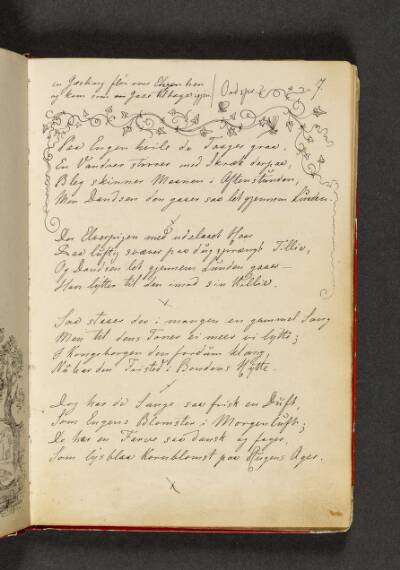 en Gæsling fløi over Ehren hen
og kom som en Gaas tilbage igjen
Ordsprok
7.
Paa Engen hvile de Taager graa,
En Vandrer stirrer med Skræk derpaa,
Bleg skinner Maanen i Aftenstunden,
Men Dandsen den gaaer saa let gjennem Lunden.
Den Elverpigen med udslaaet Haar
Saa luftig svæver paa dugsprængt Tillie,
Og Dandsen let gjennem Lunden gaaer —
Han lytter til den imod sin Willie.
Saa staaer der i mangen en gammel Sang
Men til dens Toner ei meer vi lytte;
I Kongeborgen den fordum klang,
Nu har den Fristed i Bondens Hytte.
Dog har de Sange saa frisk en Duft,
Som Engens Blomster i Morgenluft;
De har en Farve saa dansk og fager,
Som lysblaa Kornblomst paa Rugens Ager.